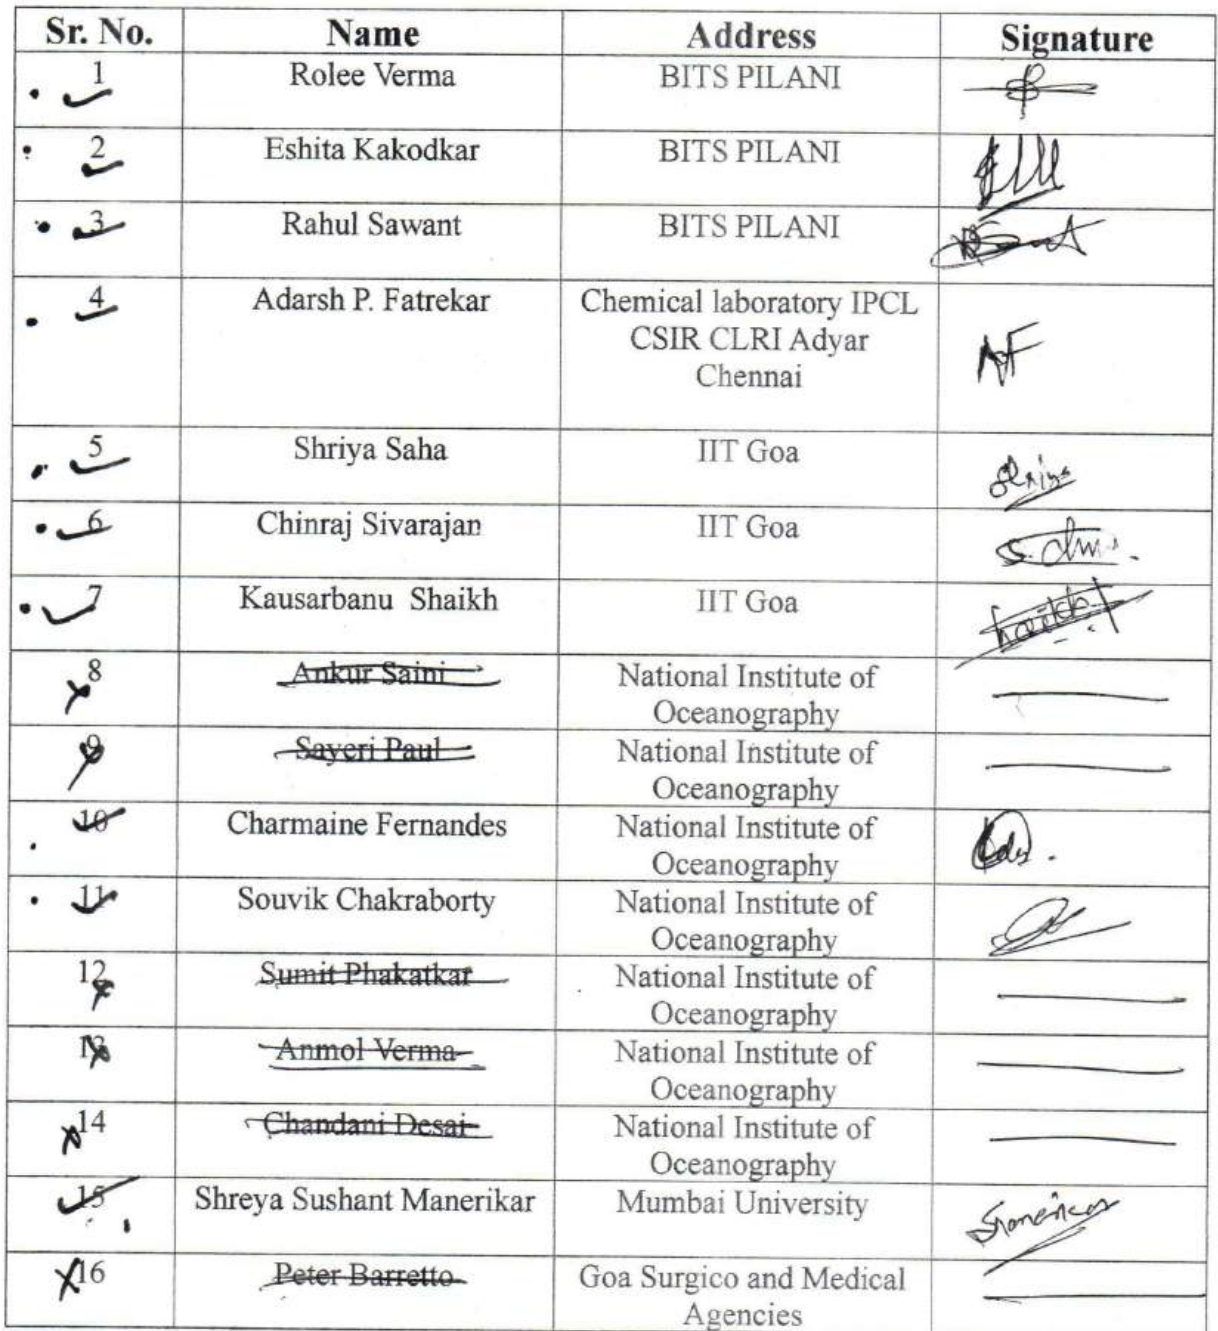 Sr. No. Name Address Signature
1 Rolee Verma BITS PILANI
2 Eshita Kakodkar BITS PILANI
3 Rahul Sawant BITS PILANI
4 Adarsh P. Fatrekar Chemical laboratory IPCL
CSIR CLRI Adyar
Chennai
AF
5 Shriya Saha IIT Goa
Shriya
6 Chinraj Sivarajan IIT Goa
7 Kausarbanu Shaikh IIT Goa
8 Ankur Saini National Institute of
Oceanography
9 Sayeri Paul National Institute of
Oceanography
10 Charmaine Fernandes National Institute of
Oceanography
11 Souvik Chakraborty National Institute of
Oceanography
12 Sumit Phakatkar National Institute of
Oceanography
13 Anmol Verma National Institute of
Oceanography
14 Chandani Desai National Institute of
Oceanography
15 Shreya Sushant Manerikar Mumbai University
16 Peter Barretto Goa Surgico and Medical
Agencies